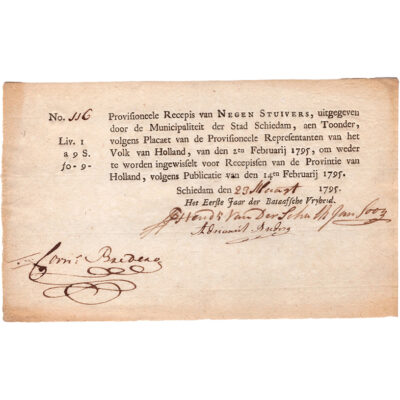 No. 116 Provisioneele Recepis van NEGEN STUIVERS, uitgegeven
door de Municipaliteit der Stad Schiedam, aen Toonder,
Liv. I volgens Placaet van de Provisioneele Representanten van het
a 9 S. Volk van Holland, van den 2den Februarij 1795, om weder
fo-9- te worden ingewisselt voor Recepissen van de Provintie van
Holland, volgens Publicatie van den 14den Februarij 1795.
Schiedam den 23 Maart 1795.
Het Eerste Jaar der Bataafsche Vryheid.
van Der